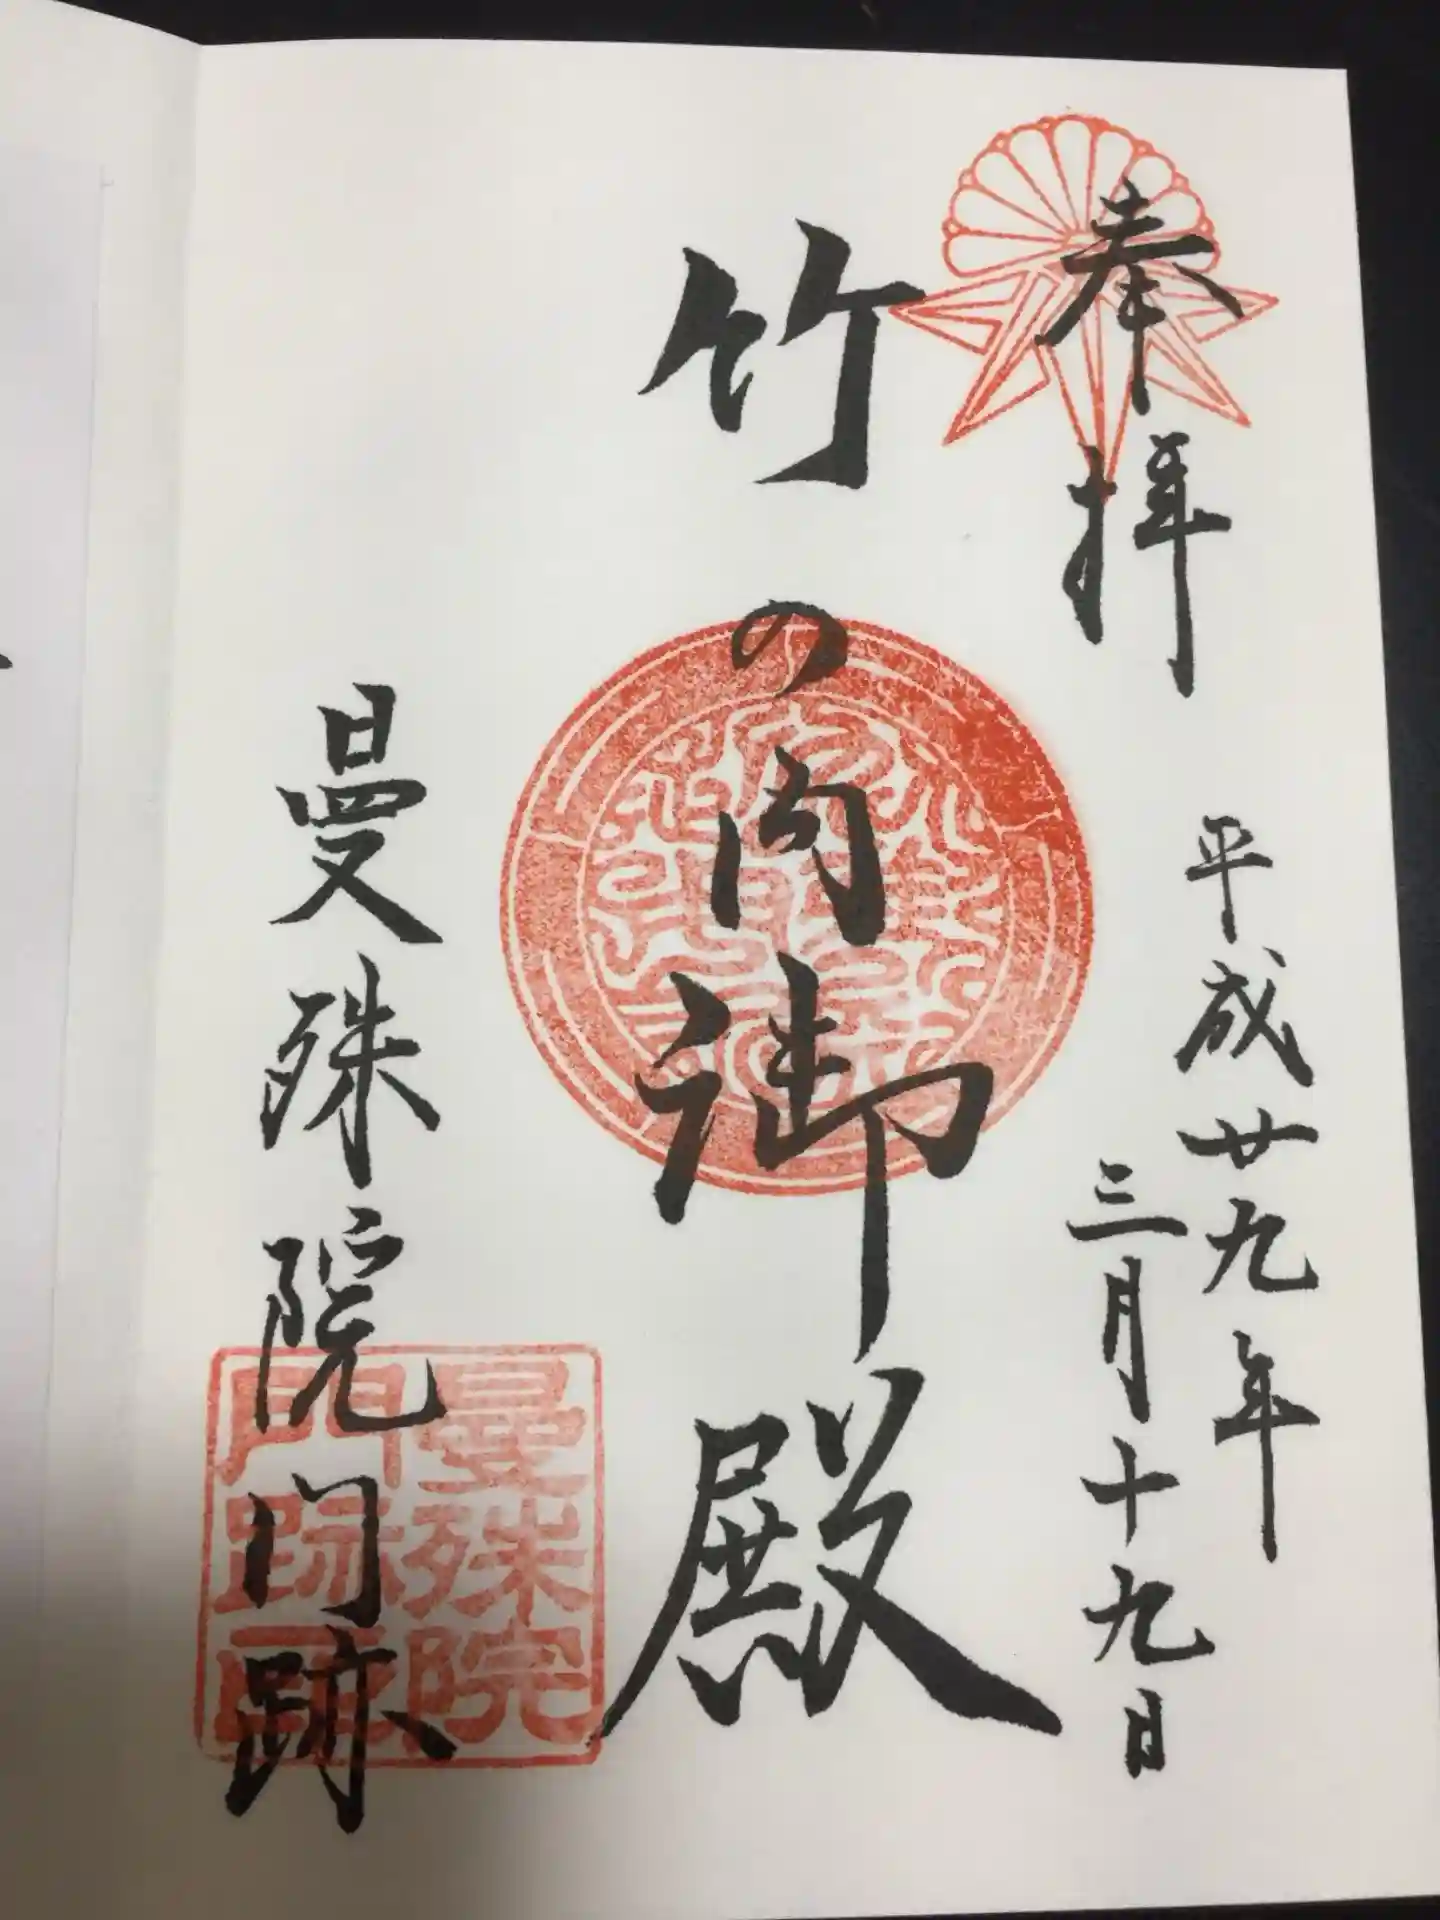 奉拝
平成廿九年
三月十九日
竹の内御殿
曼殊院门跡
曼殊院
門跡